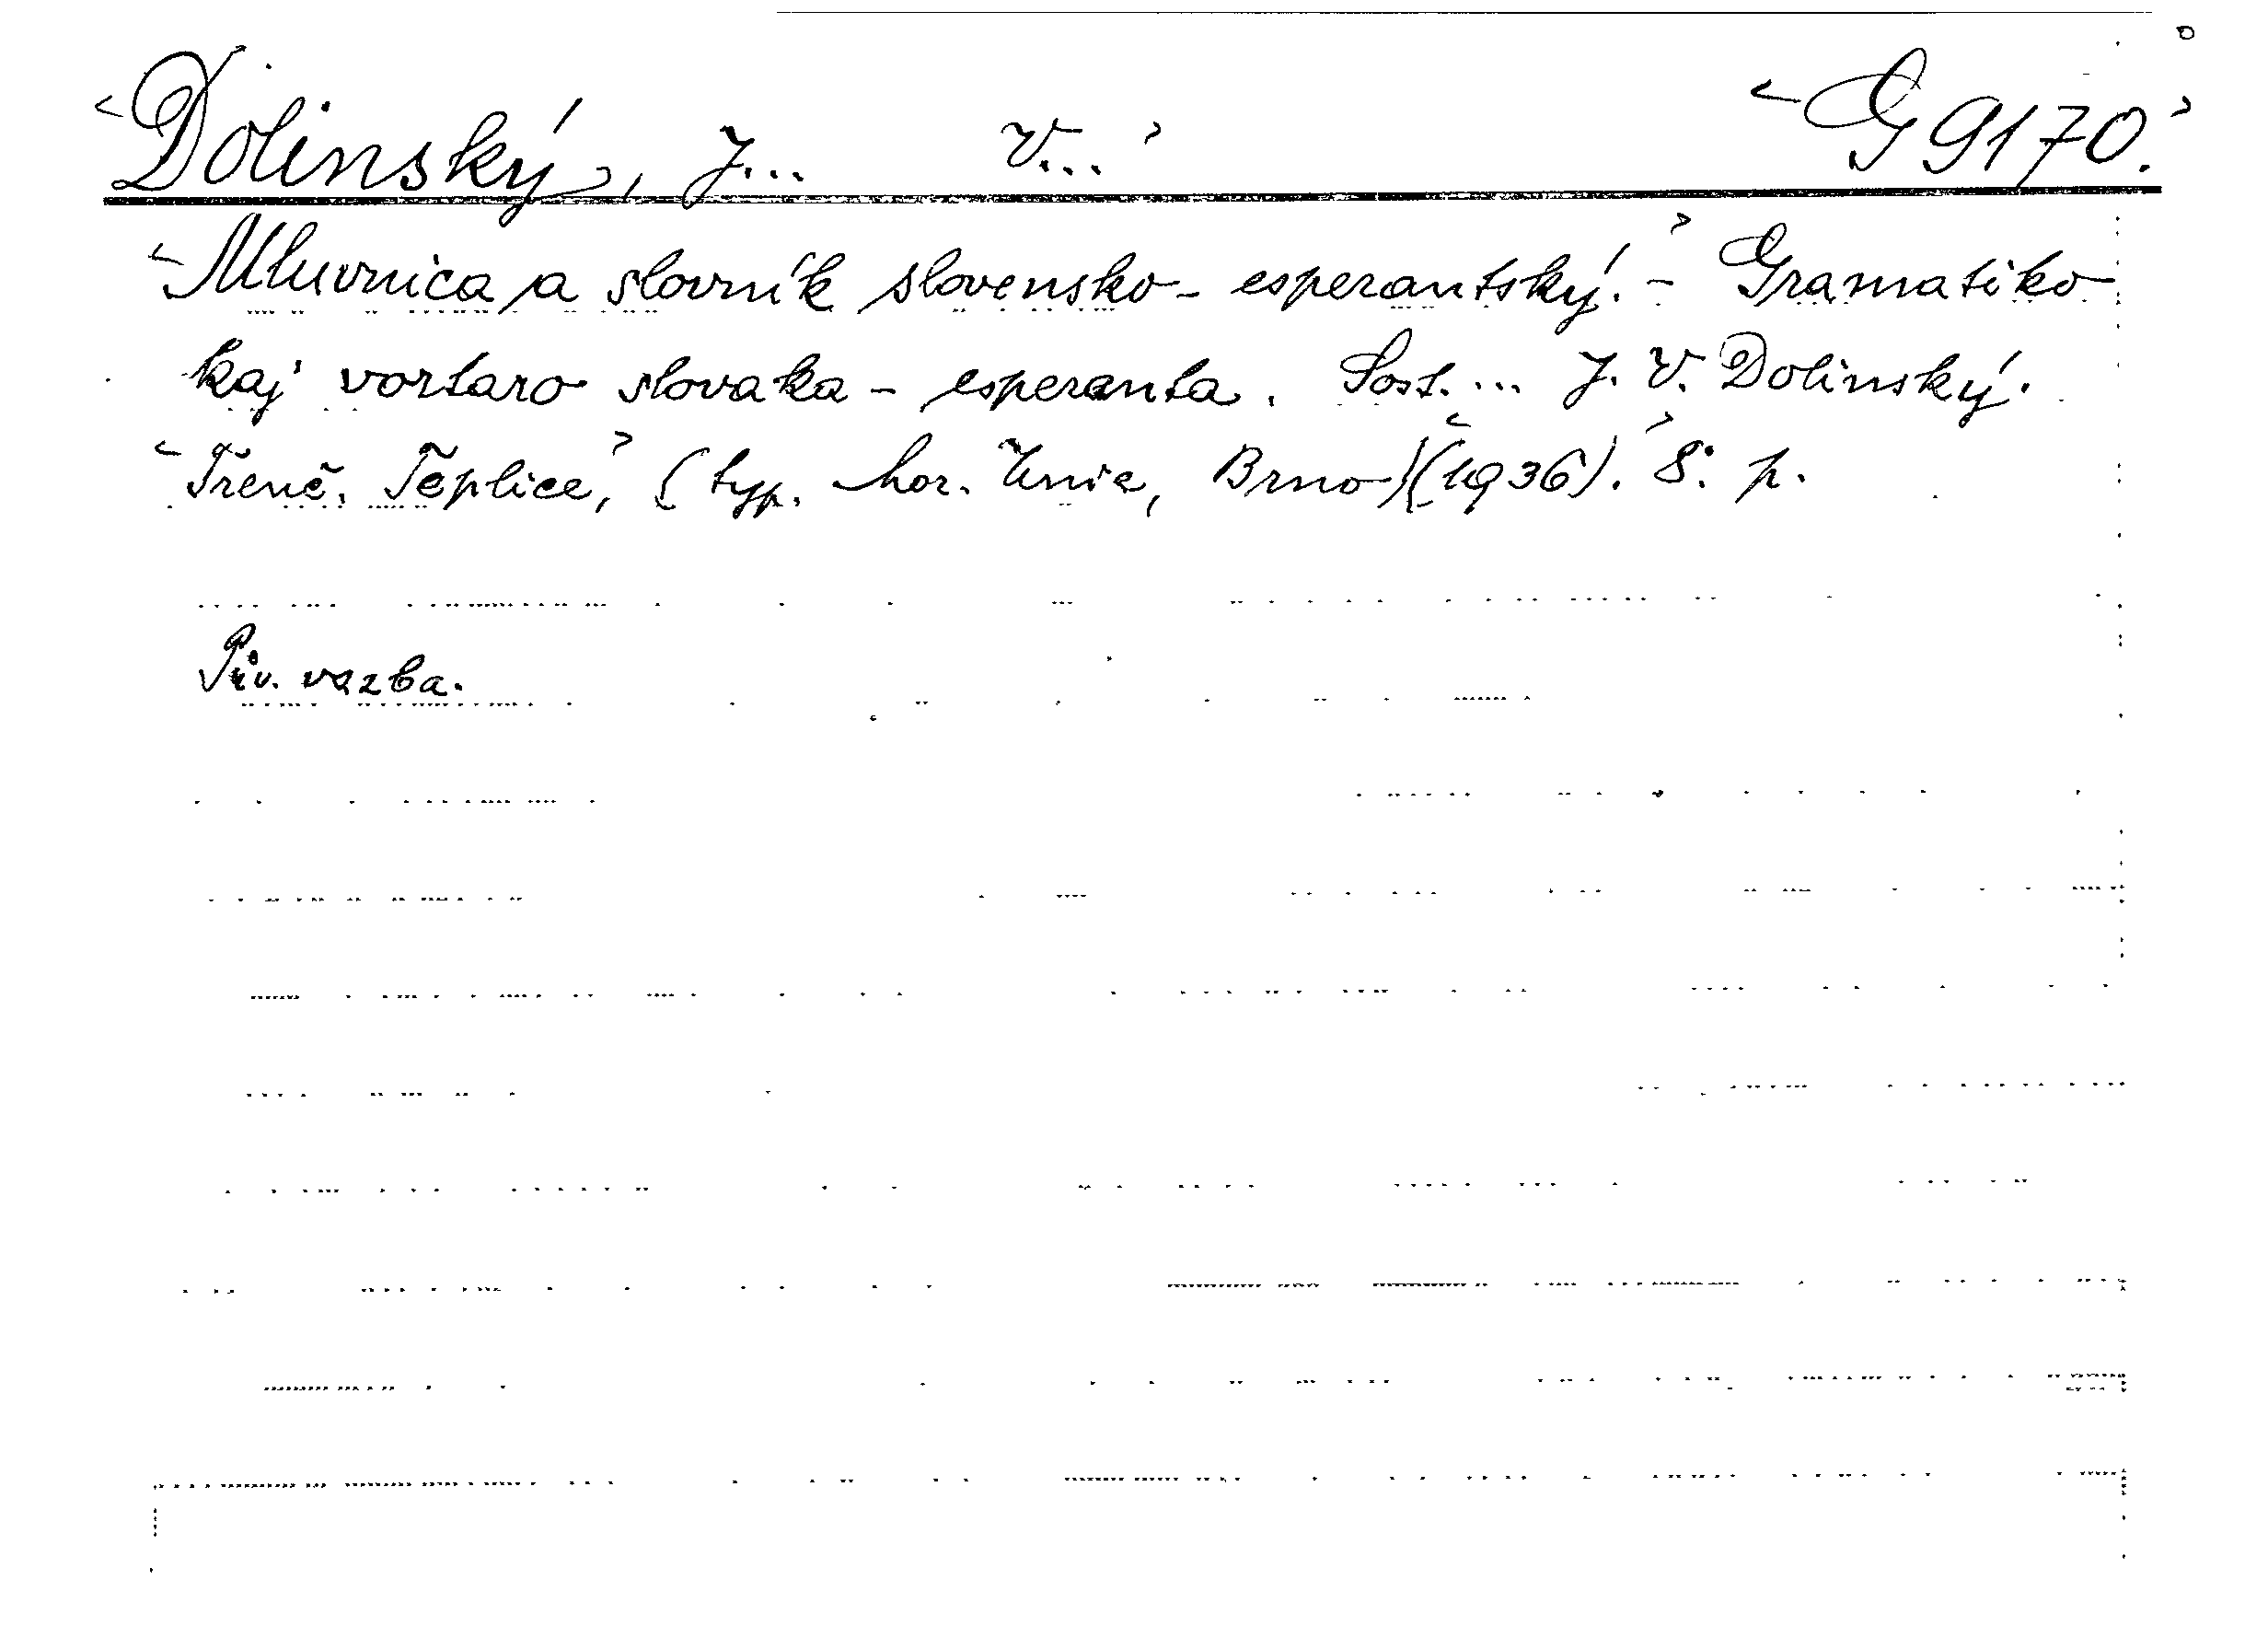 <Dolinský, J... V...> <G 9170.>
<Mluvnica a slovník slovensko-esperantský.> - Gramatiko
kaj vortaro slovaka - esperanta. Sost. ... J. V. Dolinský.
<Trenč. Teplice,> (typ. Mor. Unie, Brno) <(1936).> 8° p.
Pův. vazba.